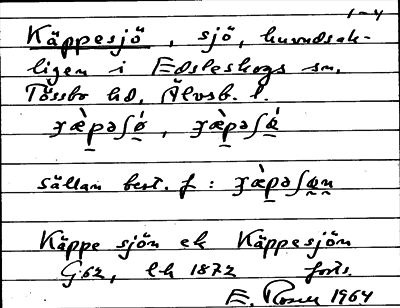 1-4
Käppesjö, sjö, huvudsak-
ligen i Edsleskogs sn.
Tössbo hd, Älvsb. l.
sällan best. f :
Käppe sjön ek Käppesjön
G 62, lk 1872 forts.
E. Rosen 1964